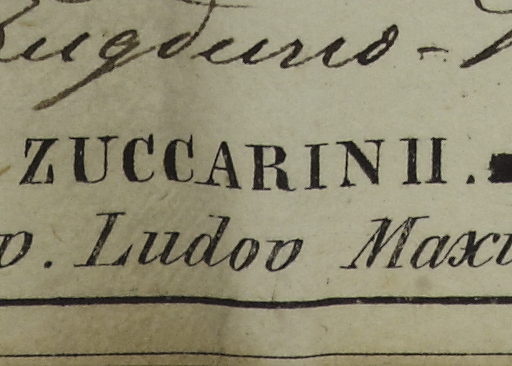 Lugduno-
ZUCCARINII.
v. Ludov Maxi